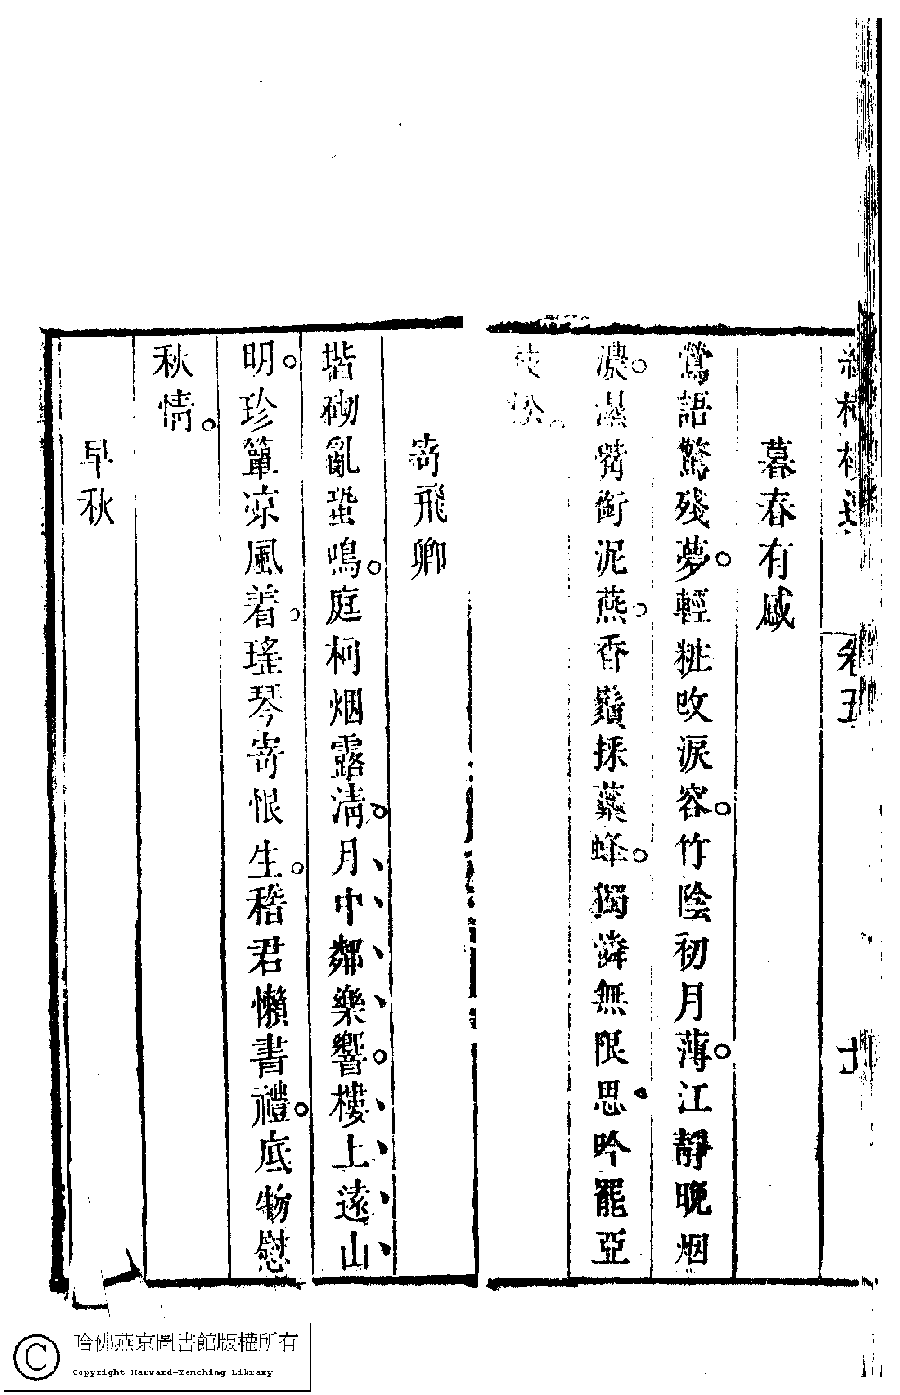 卷五
暮春有感
鶯語驚殘夢。輕粧改淚容。竹陰初月薄。江靜晚烟
濃。濕觜銜泥燕。香鬚採蘂蜂。獨憐無限思。吟罷亞
枝松。
寄飛卿
堦砌亂蛩鳴。庭柯烟露清。月中鄰樂響。樓上遠山
明。珍簟凉風着。瑤琴寄恨生。稽君懶書禮。底物慰
秋情。
早秋
哈佛燕京圖書館版權所有
Copyright Harvard-Yenching Library